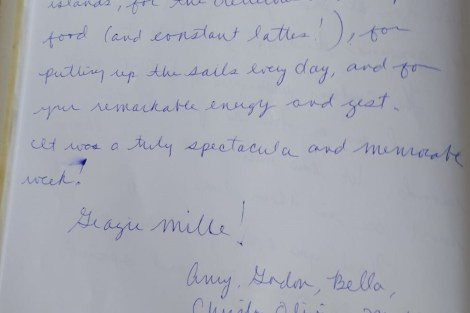 islands, for the
food (and constant lattes!), for
putting up the sails every day, and for
your remarkable energy and zest.
It was a truly spectacular and memorable
week!
Grazie mille!
Amy, Gordon, Bella,